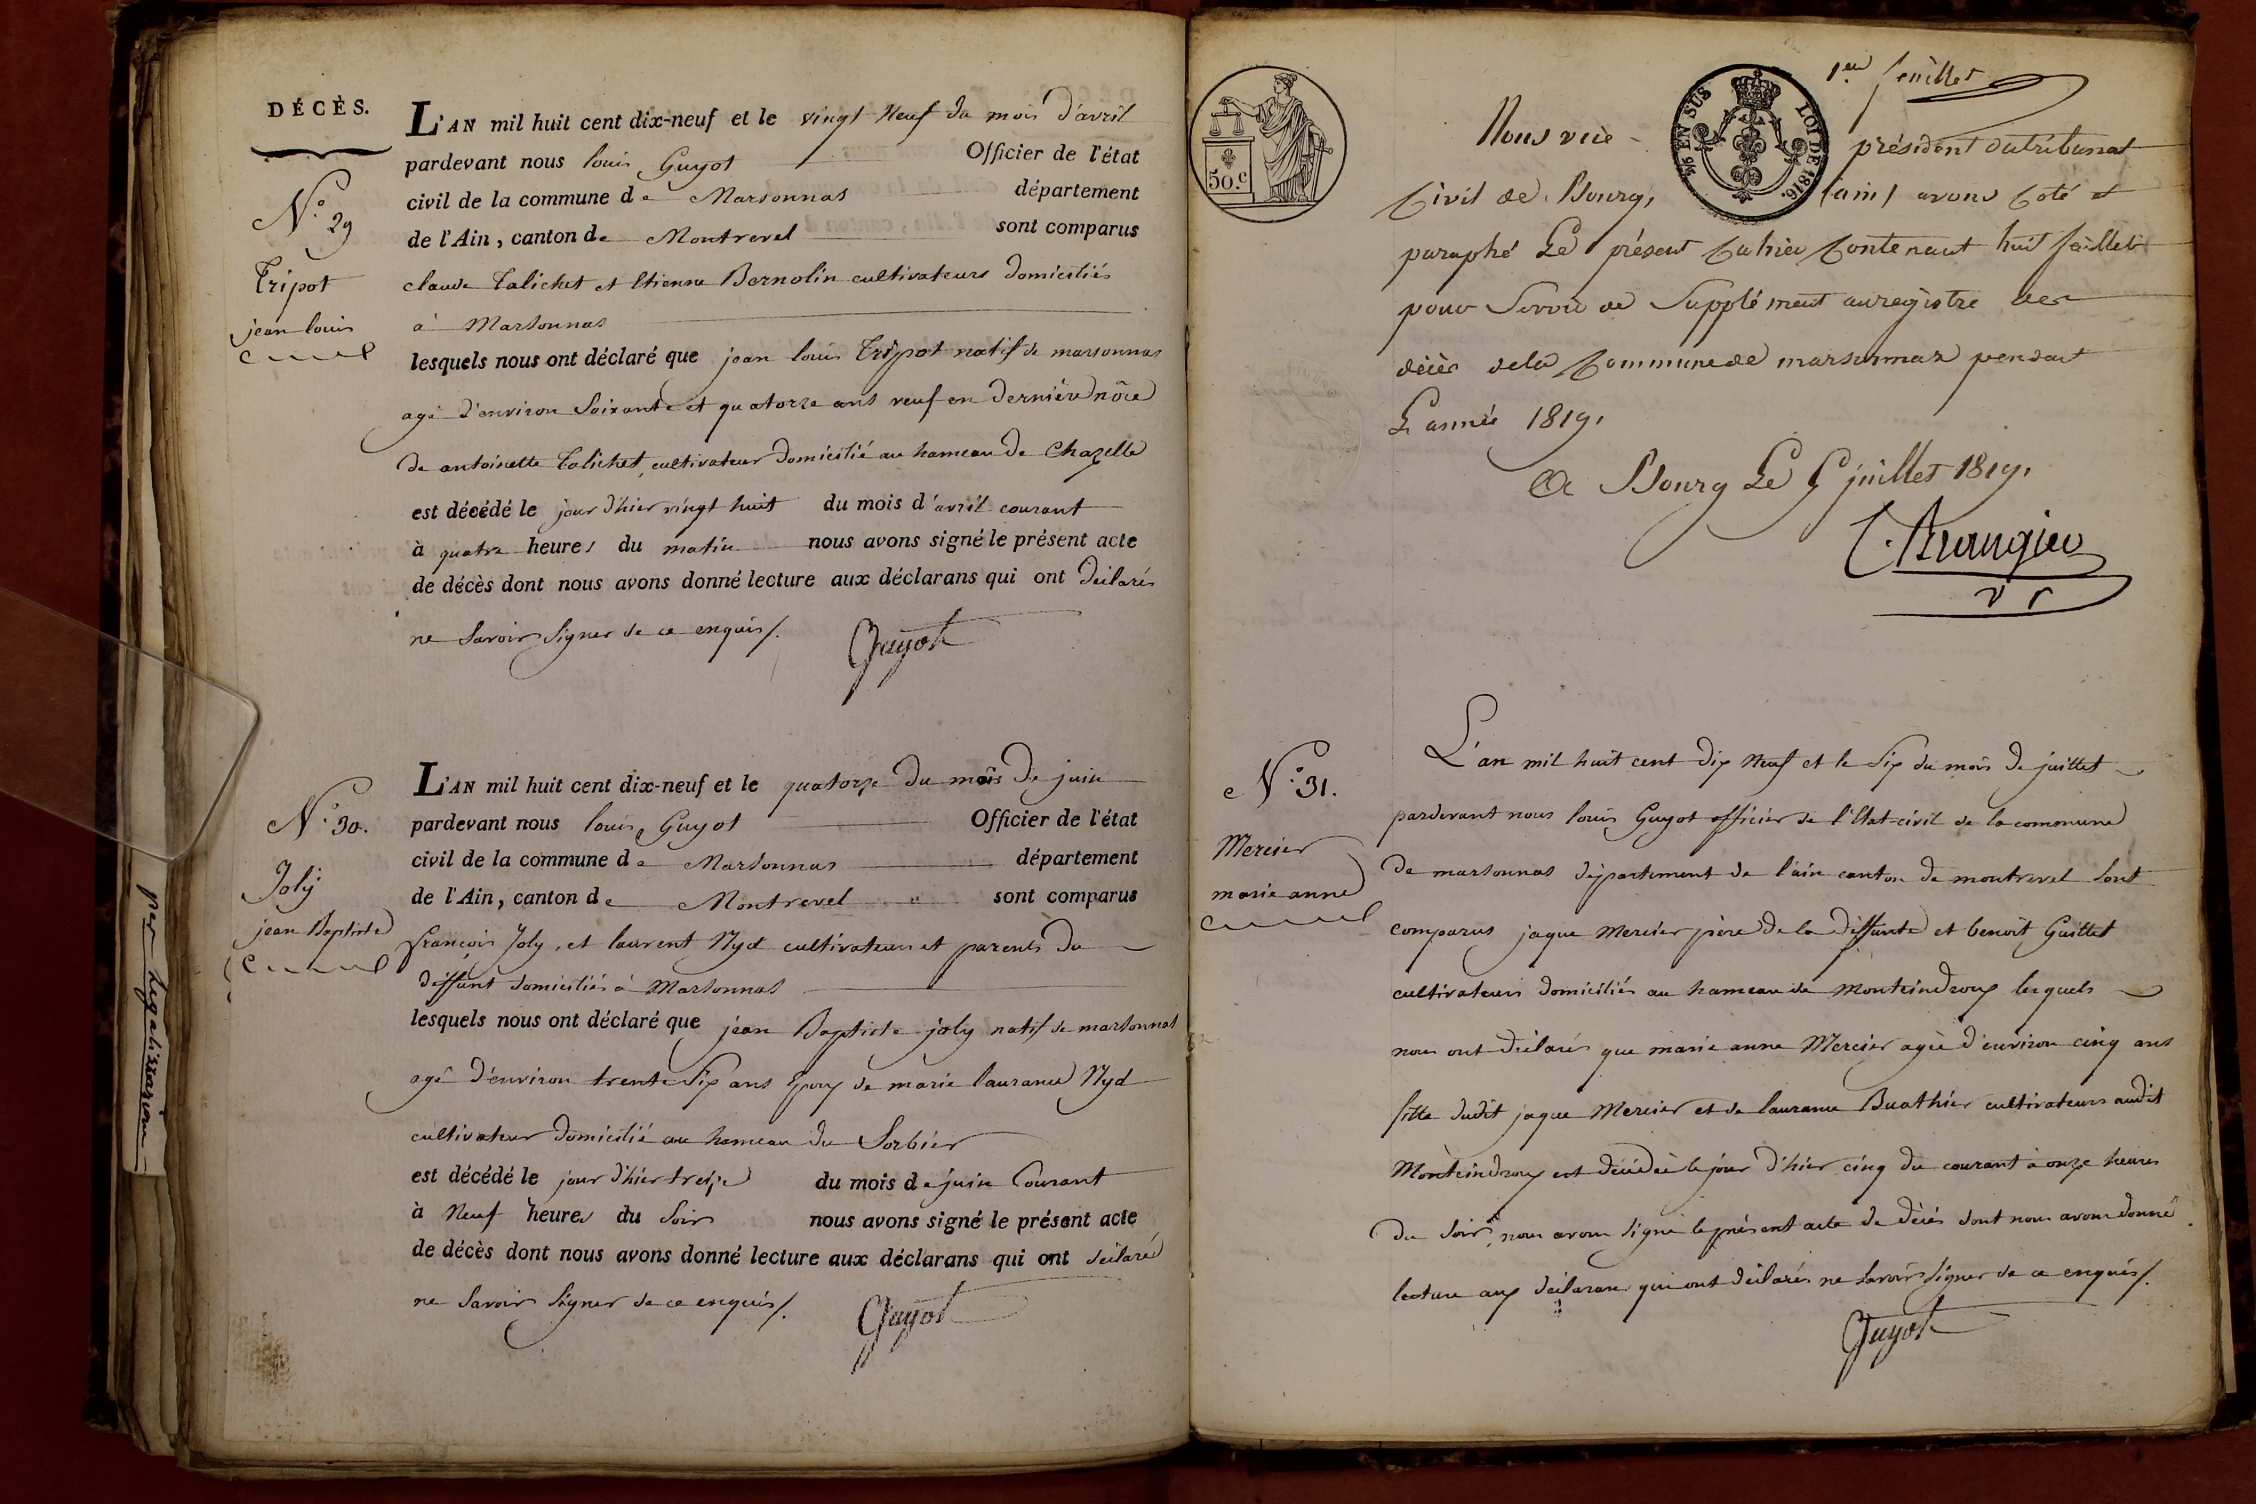 DÉCÈS.
N.° 29
Tripot
jean louis
L'AN mil huit cent dix-neuf et le vingt Neuf du mois d'avril
pardevant nous louis Guyot Officier de l'état
civil de la commune de Marsonnas département
de l'Ain, canton de Montrevel sont comparus
claude Talichet et Etienne Bernolin cultivateurs domiciliés
à Marsonnas
lesquels nous ont déclaré que jean louis Tripot natif de marsonnas
agé d'environ Soixante et quatorze ans veuf en derniéré nôce
de antoinette Talichet, cultivateur domicilié au hameau de Chazelle
est décédé le jour d'hier vingt huit du mois d'avril courant
à quatre heures du matin nous avons signé le présent acte
de décès dont nous avons donné lecture aux déclarans qui ont déclarés
ne Savoir Signer de ce enquis/.
Guyot
N.° 30.
Joly
jean Baptiste
L'AN mil huit cent dix-neuf et le quatorze du mois de juin
pardevant nous louis Guyot Officier de l'état
civil de la commune de Marsonnas département
de l'Ain, canton de Montrevel sont comparus
françois Joly, et laurent Nyd cultivateurs et parents du
deffunt domiciliés à Marsonnas
lesquels nous ont déclaré que jean Baptiste joly natif de marsonnas
agé d'environ trente Six ans Epoux de marie laurance Nyd
cultivateur domicilié au hameau du Sorbier
est décédé le jour d'hier treize du mois de juin Courant
à Neuf heures du Soir nous avons signé le présent acte
de décès dont nous avons donné lecture aux déclarans qui ont déclaré
ne Savoir Signer de ce enquis/.
Guyot
par legalisation
50.c
1/6 EN SUS LOI DE 1816.
1er feuillet
Nous vice président du tribunal
Civil de Bourg, (ain) avons Coté et
paraphé Le présent Cahier Contenant huit feuillets
pour Servir de Supplément au registre des
décès de la Commune de marsonnas pendant
L'année 1819.
A Bourg Le 5 juillet 1819.
N.° 31.
Mercier
marie anne
L'an mil huit cent dix Neuf et le Six du mois de juillet
pardevant nous louis Guyot officier de l'Etat civil de la commune
de marsonnas département de l'ain canton de montrevel Sont
comparus jaque Mercier pére de la deffunte et benoît Guillet
cultivateurs domiciliés au hameau de Monteindroux lesquels
nous ont déclarés que marie anne Mercier agée d'environ cinq ans
fille dudit jaque Mercier et de laurance Buathier cultivateurs audit
Monteindroux est décédée le jour d'hier cinq du courant à onze heures
du Soir, nous avons signé le présent acte de décés dont nous avons donné
lecture aux déclarans qui ont déclarés ne Savoir Signer de ce enquis/.
Guyot